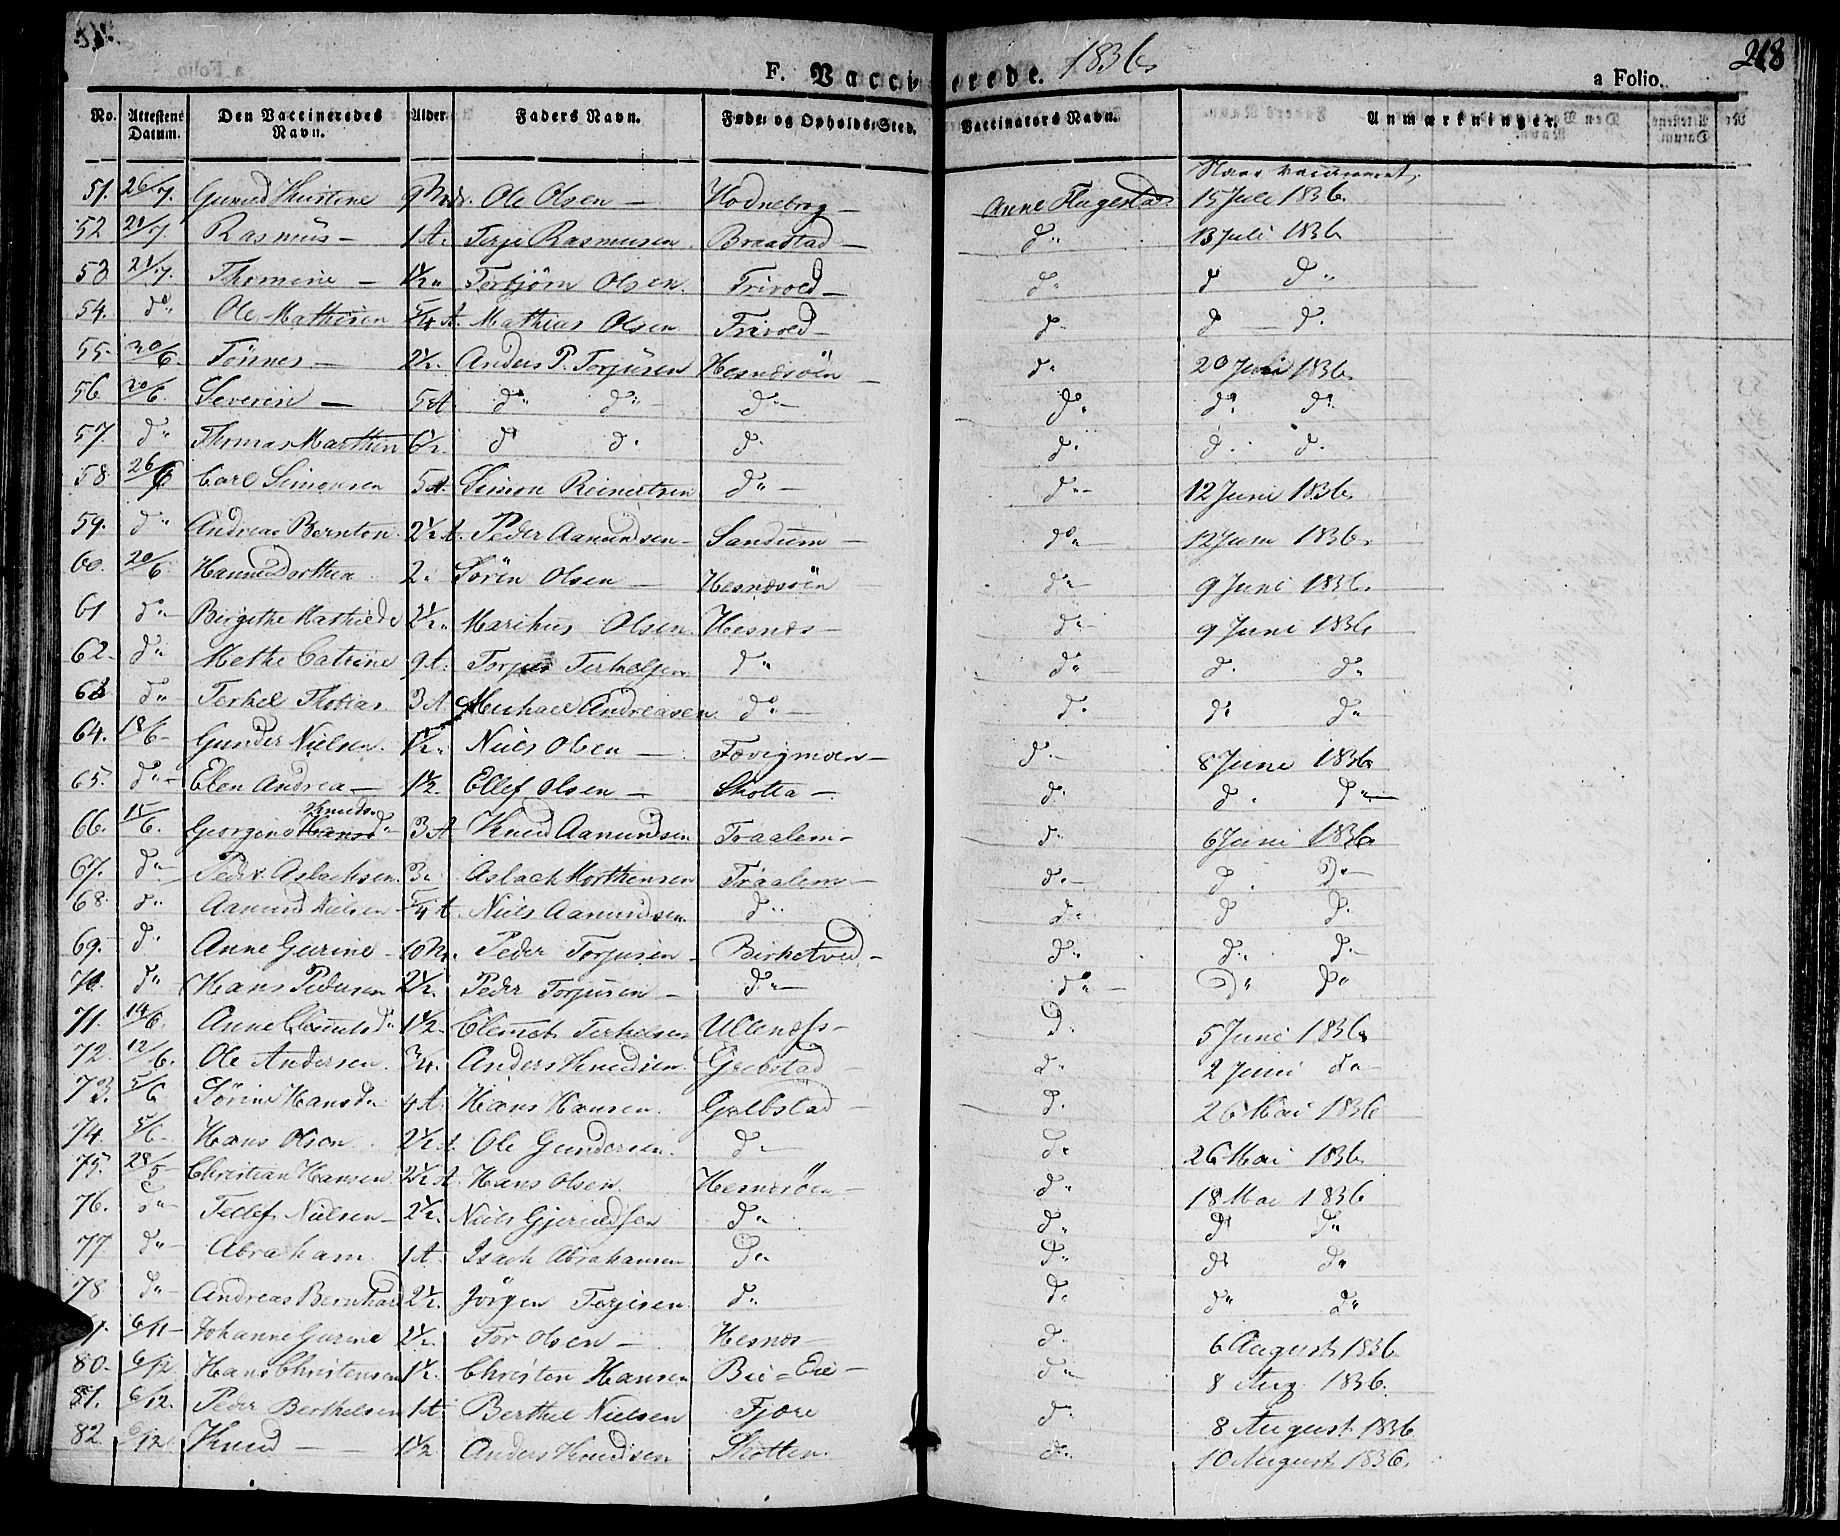 F. Vaccinerede. 1836. a Folio. 218
No. Attestens Datum. Den Vaccineredes Navn. Alder. Faders Navn. Føde- og Opholds-Sted. Vaccinators Navn. Anmærkninger.
Naar vaccineret.
51. 26/7. Gunild Kirstine 9 Mdr. Ole Olsen — Hodnebrog — Anne Flugestad 15 Juli 1836.
52 21/7. Rasmus — 1 A. Terje Rasmusen Brastad — d" 13 Juli 1836
53 21/7. Thomine — 1½ " Torbjörn Olsen. Trivold — d" d d"
54. do" Ole Mathisen 5/4 A. Mathias Olsen Trivold — d- d — d.
55. 20/6. Tönnes — 2½. Anders P. Torjusen Hesnesöen — d" 20 Juni 1836.
56 20/6. Severin — 5 A d" d" d" — d". d". d".
57. d" Thomas Marthin 6½. d d. d. d. d. d.
58. 26/6 Carl Simonsen 5 A. Simon Reinertsen d" — d" — 12 Juni 1836.
59. d" Andreas Bernton. 2½ A. Peder Aamundsen — Sandum — do" 12 Juni 1836.
60. 20/6. Hanne Dorthea 2. Sören Olsen — Hesnesöen d" — 9 Juni 1836.
61 d" — Birgithe Mathilde 2½. Marthus Olsen. Hesnes — d" — 9 Juni 1836
62. d" Methe Catrine 9 A. Torjus Terkelsen d" d" d. d"
63 d" Terkel Thobias 3 A Michael Andreasen. d" — d. d" d"
64. 18/6 — Gunder Nielsen. 1½. Niels Olsen — Fevigmoen — d. — 8 Juni 1836
65. d" — Elen Andrea — 1½. Ellef Olsen — Skotta — d. d. d" —
Knudsd"
66. 15/6. Georgine Hansd" 3 A Knud Aamundsen Traalem — d" 6 Juni 1836
67. d" — Peder Aslachsen 3. Aslach Morthensen Traalem — d. — d. D" —
68. d" Aamund Nielsen 5/4 A. Niels Aamundsen d". d" d d.
69. d. Anne Gurine — 10 M. Peder Torjusen — Birketved — d" d". d. —
70. d" Hans Pedersen 2½. Peder Torjusen — d" — d" — D" d"
71. 14/6. Anne Clemetsd" 1½. Clemet Terkelsen Ullenæs — D. 5 Juni 1836
72. 12/6. Ole Andersen. 3/4. Anders Knudsen. Grebstad d" 2 Juni d" —
73. 5/6 Sörine Hansd" 4 A. Hans Hansen. Grebstad — d. 26 Mai 1836
74. 5/6. Hans Olsen 2½ A. Ole Gundersen. d" d" 26 Mai 1836
75. 28/5 Christian Hansen 2½ A. Hans Olsen Hesnesöen — d" 18 Mai 1836
76. d" — Tellef Nielsen — 2½. Niels Gjeruldsen d" d" d d"
77 d" — Abraham 1 A. Isach Abrahamsen D. d". d" d"
78 d" — Andreas Bernhard 2½. Jörgen Terjesen. d". d. d" d"
79. 6/11 — Johanne Gurine 2½. Tor Olsen — Hesnes — d. 6 August 1836
80. 6/12 Hans Christensen 1½. Christen Hansen Bie-Eie — d" — 8 Aug. 1836.
81. 6/12. Peder Berthelsen 1 A. Berthel Nielsen Fjære d. 8 August 1836
82. 6/12. Knud — 1½ Anders Knudsen Skotten. d". 10 August 1836.